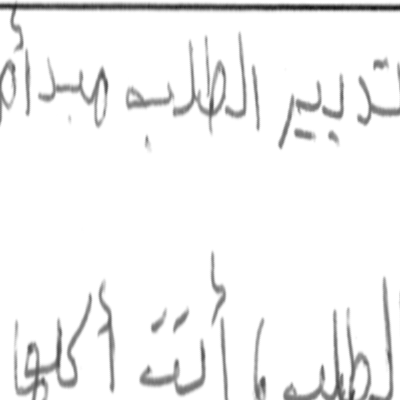 تدبير الطلب مبدأ
الطلب، أتت أكلها